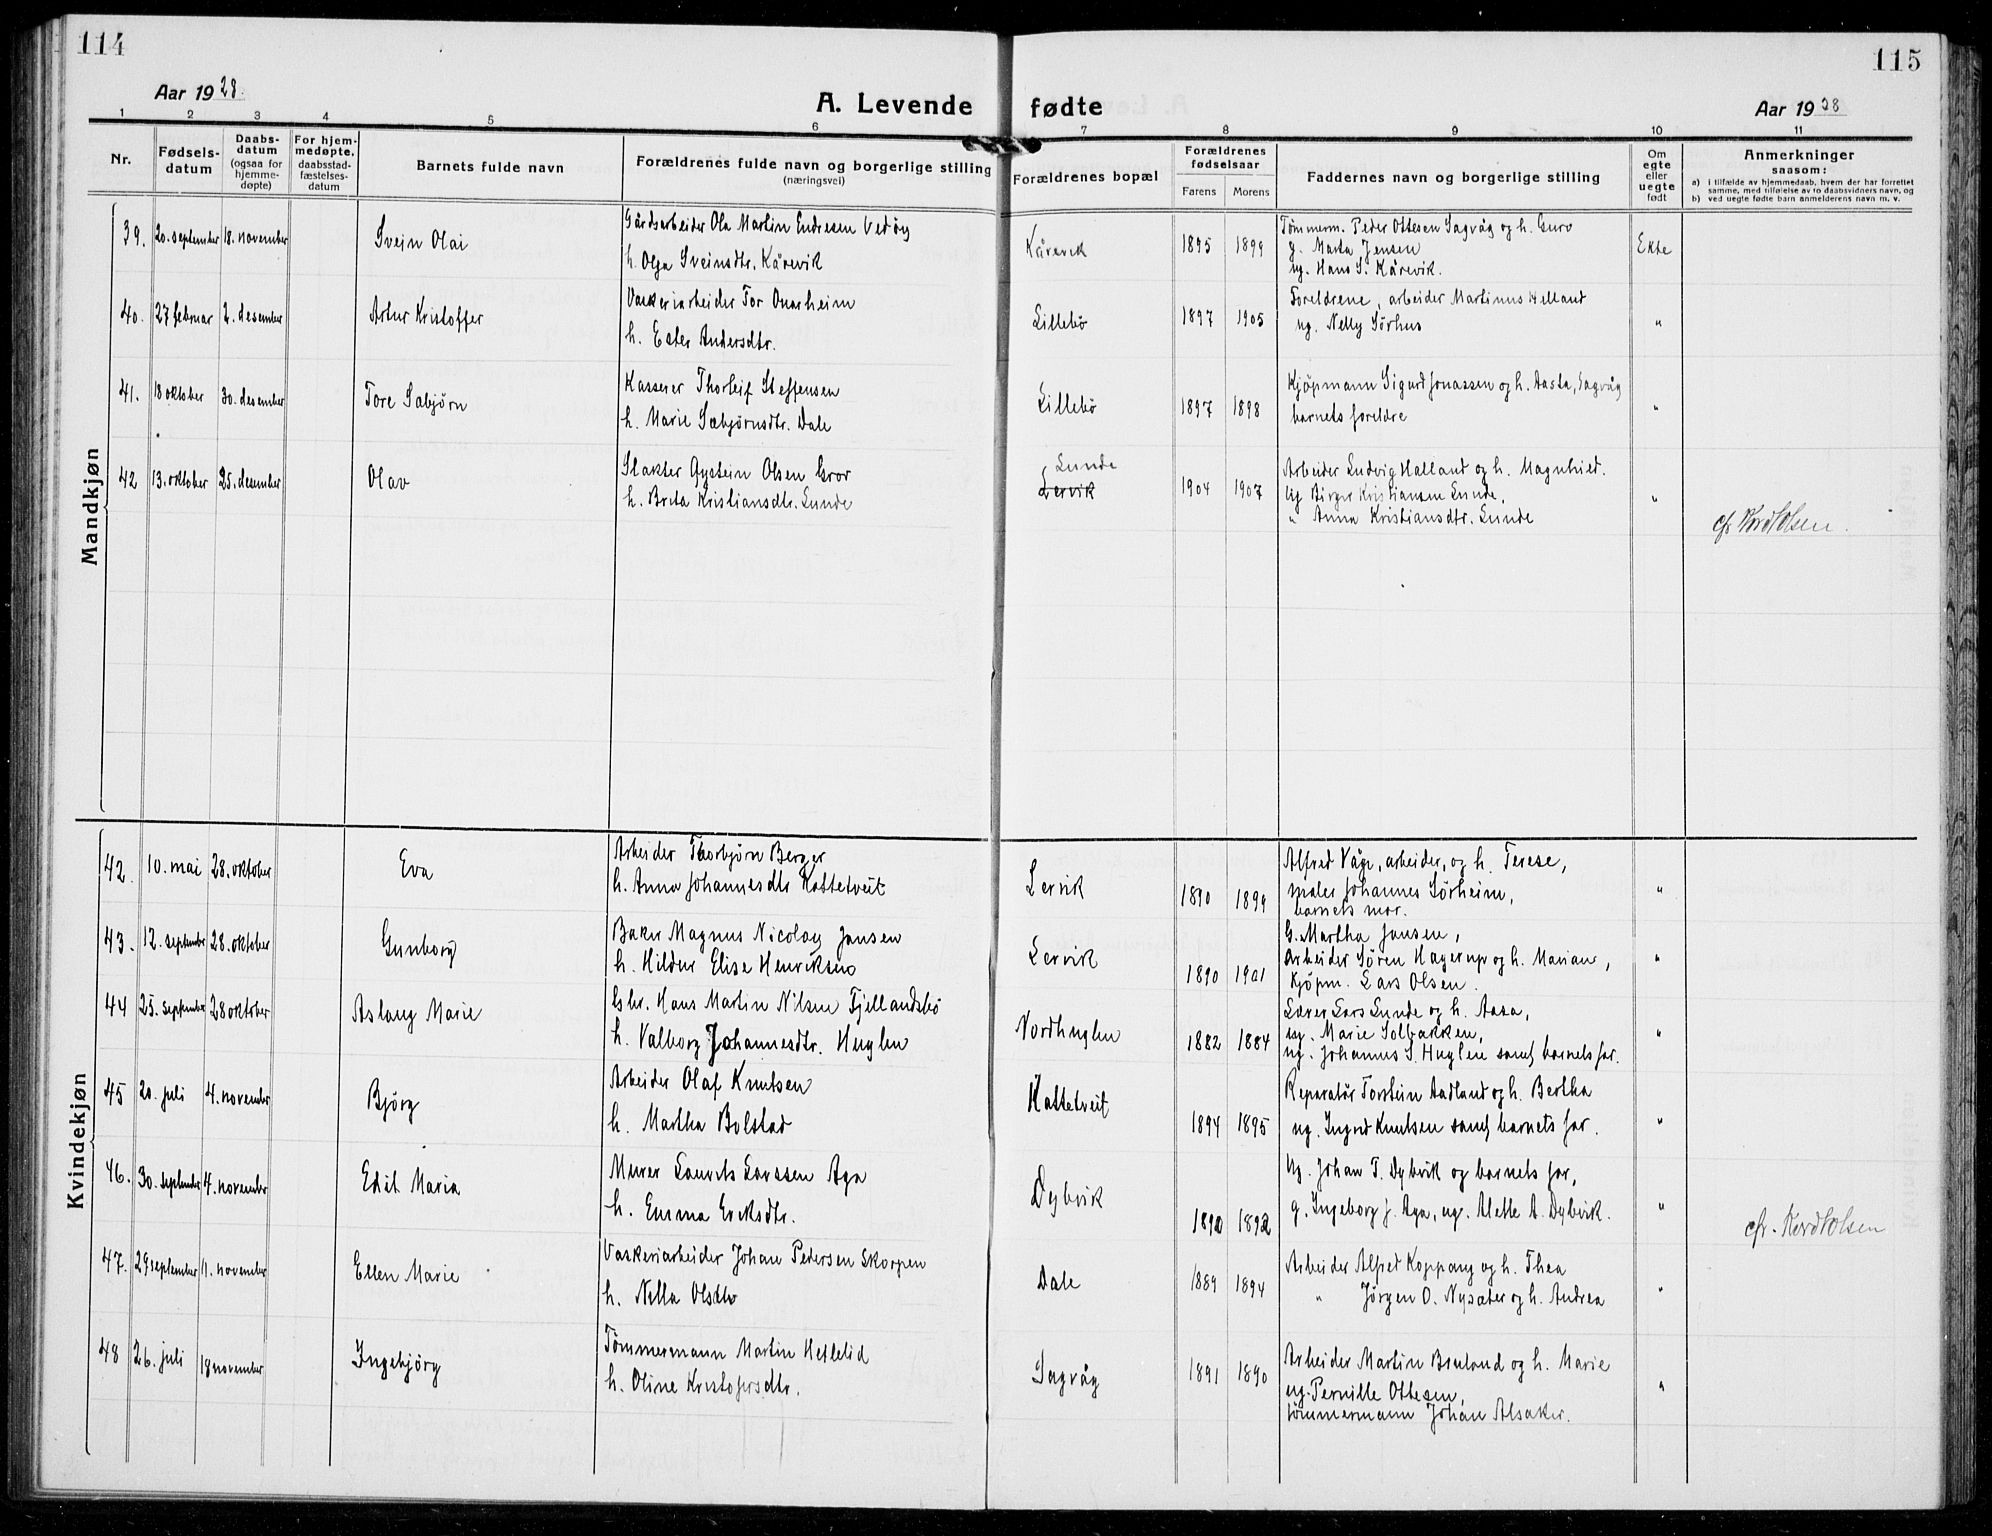 114
115
Aar 1928.
A. Levende fødte
Aar 1928
1 2 3 4 5 6 7 8 9 10 11
Nr.
Fødsels-datum
Daabs-datum (ogsaa for hjemme-døpte)
For hjem-medøpte, daabsstad-fæstelses-datum
Barnets fulde navn
Forældrenes fulde navn og borgerlige stilling (næringsvei)
Forældrenes bopæl
Forældrenes fødselsaar
Farens Morens
Faddernes navn og borgerlige stilling
Om egte eller uegte født
Anmerkninger saasom:
a) i tilfælde av hjemmedaab, hvem der har forrettet samme, med tilføielse av to daabsvidners navn, og
b) ved uegte fødte barn anmelderens navn m. v.
Mandkjøn
39. 20. september 18. november Svein Olai
Gårdsarbeider Ola Martin Endresen Vedøy
h. Olga Sveinsdtr. Kårevik
Kårevik 1895 1899
Tømmerm. Peder Ottesen Sagvåg og h. Guro
g. Marta Jensen
ug. Hans S. Kårevik.
Ekte
40. 27 februar 2. desember Artur Kristoffer
Vaskeriarbeider Tor Onarheim
h. Ester Andersdtr.
Lillebø 1897 1905
Foreldrene, arbeider Martinus Helland
ug. Nelly Sørhus
"
41. 18 oktober 30. desember Tore Sæbjørn
Kasserer Thorleif Steffensen
h. Marie Sæbjørnsdtr. Dale
Lillebø 1897 1898
Kjøpmann Sigurd Jonassen og h. Aasta, Sagvåg
barnets foreldre
"
42 13. oktober 25. desember Olav
Slakter Øystein Olsen Gror
h. Brita Kristiansdtr. Lunde
Lunde
Lervik 1904 1907
Arbeider Ludvig Halland og h. Magnhild.
Ug Birger Kristiansen Lunde,
" Anna Kristiansdtr. Lunde
"
Kvindekjøn
42. 10. mai 28. oktober Eva
Arbeider Thorbjørn Berger
h. Anna Johannesdtr Hattetveit
Lervik 1890 1899
Alfred Våge, arbeider, og h. Terese,
maler Johannes Sørheim,
barnets mor.
"
43. 12. september 28. oktober Gunborg
Baker Magnus Nicolay Jansen
h. Hildur Elise Henriksen
Lervik 1890 1901
G. Martha Jansen,
Arbeider Søren Hagerup og h. Mariane,
Kjøpm. Lars Olsen.
"
44 25. september 28 oktober Aslaug Marie
Gbr. Hans Martin Nilsen Fjellandsbø
h. Valborg Johannesdtr. Huglen
Nordhuglen 1882 1884
Lærer Lars Lunde og h. Aasa,
ug. Marie Solbakken,
ug. Johannes S. Huglen samt barnets far.
"
45 20. juli 4. november Bjørg
Arbeider Olaf Knutsen
h. Martha Bolstad
Hattetveit 1894 1895
Reparatør Torstein Aadland og h. Bertha
ug. Ingrid Knutsen samt barnets far.
"
46. 30. september 4. november Edit Maria
Murer Laurits Larssen Aga
h. Emma Eriksdtr.
Dybvik 1890 1892
Ug. Johan T. Dybvik og barnets far,
g. Ingeborg J. Aga, ug. Alette A. Dybvik.
"
47. 29 september 11. november Ellen Marie
Vaskeriarbeider Johan Pedersen Skorpen
h. Nilla Olsdtr
Dale 1889 1894
Arbeider Alfred Koppang og h. Thea
" Jørgen O. Nysæter og h. Andrea
"
48 26. juli 18 november Ingebjørg
Tømmermann Martin Hellelid
h. Oline Kristofersdtr.
Sagvåg 1891 1890
Arbeider Martin Breiland og h. Marie
ug. Pernille Ottesen,
tømmermann Johan Alsaker.
"